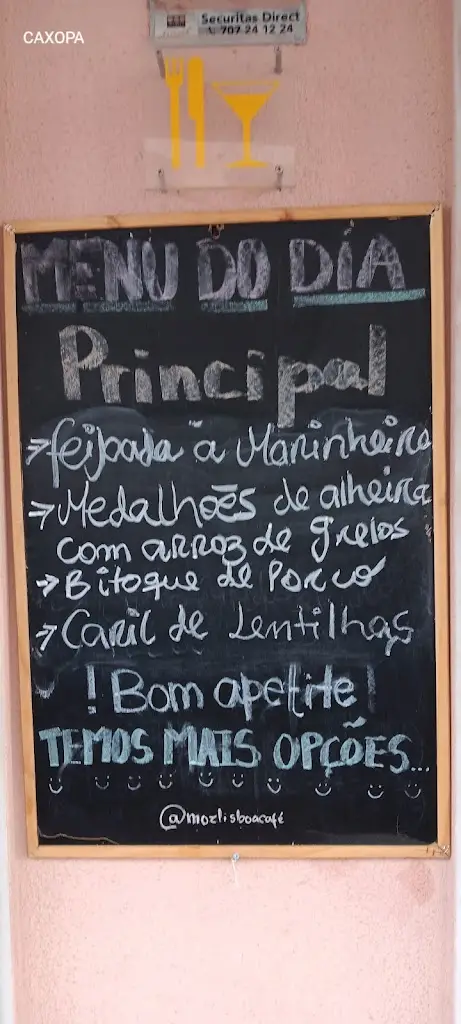 CAXOPA
Securitas Direct
707 24 12 24
MENU DO DIA
Principal
→ feijoada à Marinheira
→ Medalhões de alheira
com arroz de grelos
→ Bitoque de Porco
→ Caril de Lentilhas
! Bom apetite!
TEMOS MAIS OPÇÕES...
@mozlisboacafé